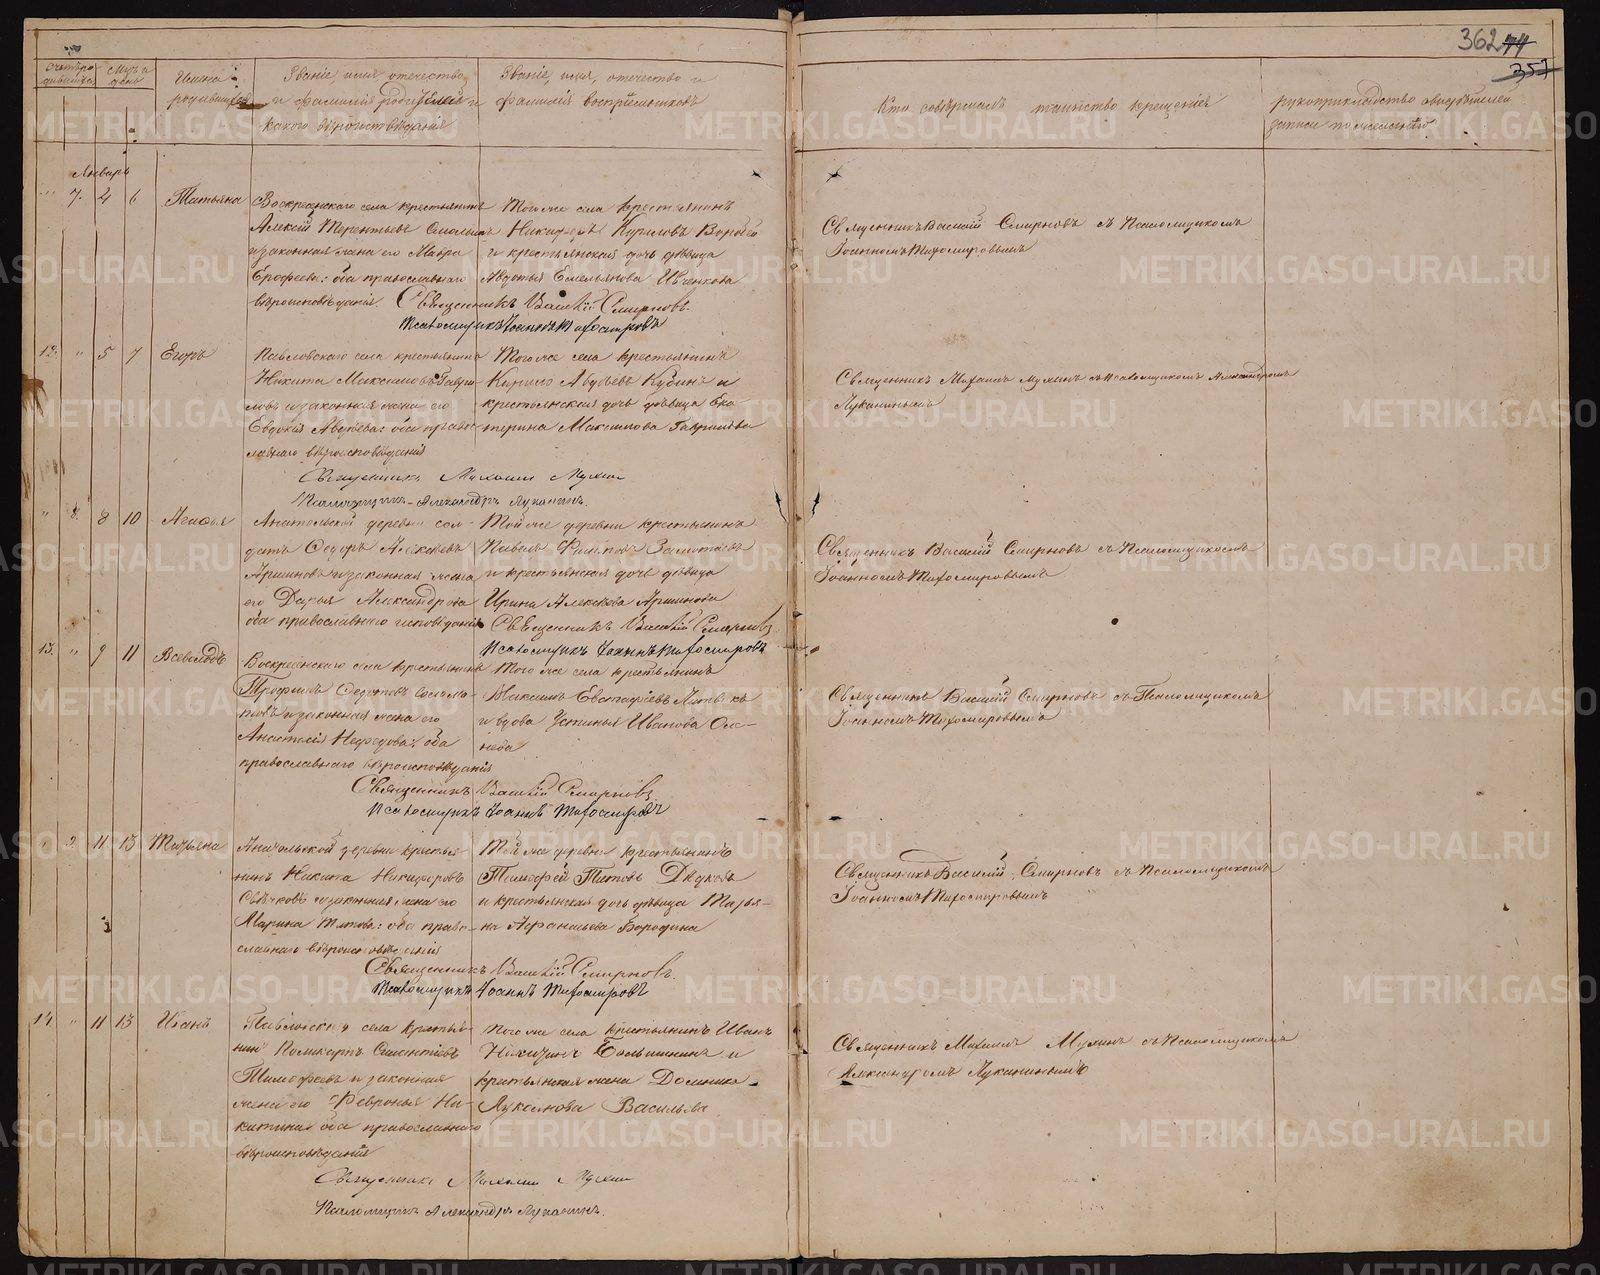 362 44
357
Счетъ ро-
дившихся
Мѣс. и
день
Имена
родившихся
Званіе, имя, отечество
и фамилія родителей и
какого вѣроисповѣданія
Званіе, имя, отечество и
фамилія воспріемниковъ
Кто совершалъ таинство крещенія
рукоприкладство свидѣтелей
записи по желанію
Январь
7. 4 6 Татьяна
Воскресенскаго села крестьянинъ
Алексѣй Терентьевъ
и законная жена его Мавра
Ерофеева: оба православнаго
вѣроисповѣданія
Того же села крестьянинъ
Никифоръ Кириловъ
и крестьянская дочь дѣвица
Авдотья Емельянова Ивченкова
Священникъ Василій Смирновъ
Псаломщикъ Іоаннъ Тихомировъ
Священникъ Василій Смирновъ съ Псаломщикомъ
Іоанномъ Тихомировымъ
12. " 5 7 Егоръ
Павловскаго села крестьянинъ
Никита Максимовъ Гаври-
ловъ и законная жена его
Евдокія Авдѣева: оба право-
славнаго вѣроисповѣданія
Того же села крестьянинъ
Кирило Авдѣевъ Кубинъ и
крестьянская дочь дѣвица Ека
терина Максимова Гаврилова
Священникъ Михаилъ Мухинъ
Псаломщикъ Александръ Луканинъ.
Священникъ Михаилъ Мухинъ съ Псаломщикомъ Александромъ
Луканинымъ
" 8. 8 10 Агафья
Анатольской деревни сол-
датъ Федоръ Алексѣевъ
Аршиновъ и законная жена
его Дарья Александрова
оба православнаго исповѣданія
Той же деревни крестьянинъ
Павелъ
и крестьянская дочь дѣвица
Ирина Алексѣева Аршинова
Священникъ Василій Смирновъ
Псаломщикъ Іоаннъ Тихомировъ
Священникъ Василій Смирновъ съ Псаломщикомъ
Іоанномъ Тихомировымъ
13. " 9 11 Всеволодъ
Воскресенскаго села крестьянинъ
Трофимъ Федотовъ
и законная жена его
Анастасія Нефедова: оба
православнаго вѣроисповѣданія
Того же села крестьянинъ
Максимъ Евстафіевъ
и вдова Устинья Иванова
Священникъ Василій Смирновъ
Псаломщикъ Іоаннъ Тихомировъ
Священникъ Василій Смирновъ съ Псаломщикомъ
Іоанномъ Тихомировымъ
11 13 Татьяна
Анатольской деревни крестья
нинъ Никита Никифоровъ
и законная жена его
Марина Титова: оба право-
славнаго вѣроисповѣданія
Той же деревни крестьянинъ
Тимофей Титовъ Дядковъ
и крестьянская дочь дѣвица Татья-
на Афанасьева Бородина
Священникъ Василій Смирновъ.
Псаломщикъ Іоаннъ Тихомировъ
Священникъ Василій Смирновъ съ Псаломщикомъ
Іоанномъ Тихомировымъ
14 " 11 13 Иванъ
Павловскаго села крестья-
нинъ Поликарпъ
Тимофеевъ и законная
жена его Февронья Ни-
китина оба православнаго
вѣроисповѣданія
Того же села крестьянинъ Иванъ
Никитинъ и
крестьянская жена Домника
Лукоянова Васильева
Священникъ Михаилъ Мухинъ
Псаломщикъ Александръ Луканинъ.
Священникъ Михаилъ Мухинъ съ Псаломщикомъ
Александромъ Луканинымъ
METRIKI.GASO-URAL.RU